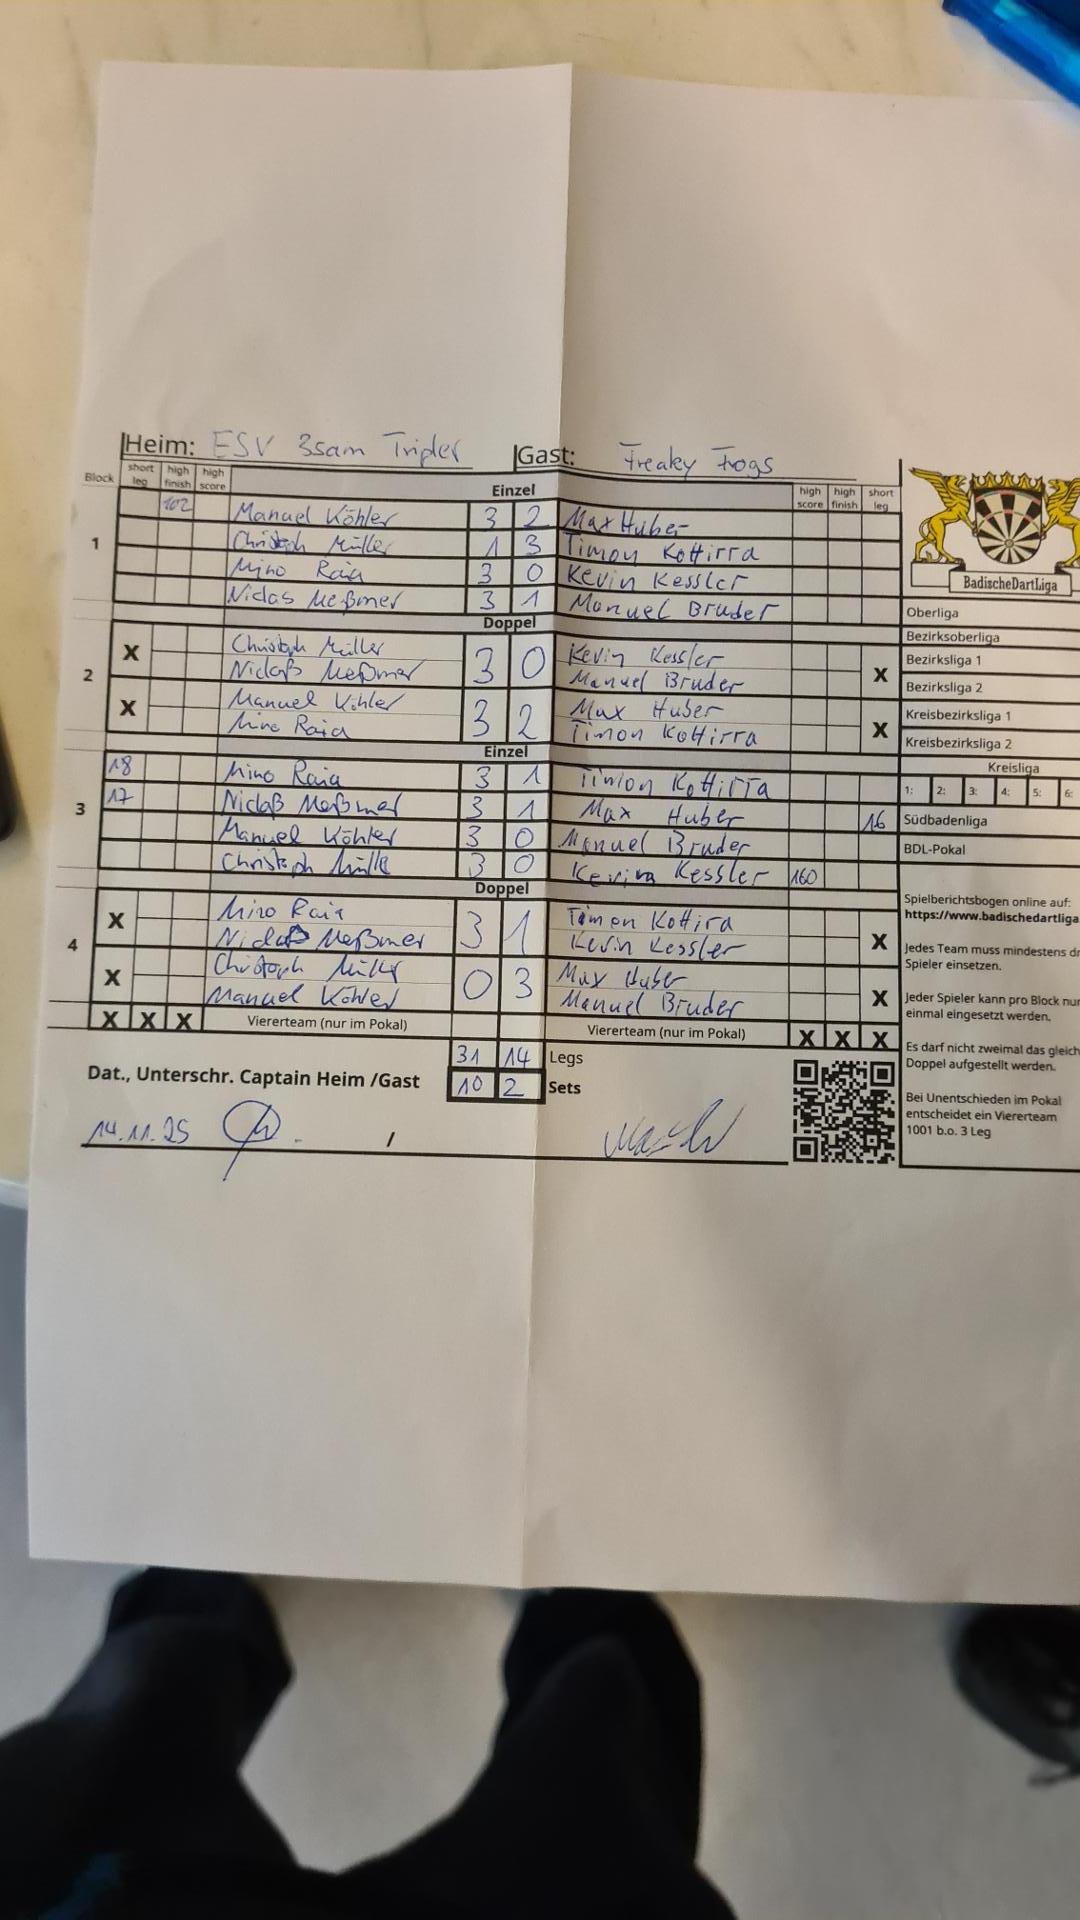 Heim: ESV 3sam Tripler Gast: Freaky Frogs
Block short leg high finish high score Einzel high score high finish short leg
1
102 Manuel Köhler 3 2 Max Huber
Christoph Müller 1 3 Timon Kottirra
Mino Raia 3 0 Kevin Kessler
Niclas Meßmer 3 1 Manuel Bruder
Doppel
2
X Christoph Müller 3 0 Kevin Kessler X
Niclaß Meßmer Manuel Bruder
X Manuel Köhler 3 2 Max Huber X
Mino Raia Timon Kottirra
Einzel
3
18 Mino Raia 3 1 Timon Kottirra
17 Niclaß Meßmer 3 1 Max Huber 16
Manuel Köhler 3 0 Manuel Bruder
Christoph Mülle 3 0 Kevin Kessler 160
Doppel
4
X Mino Raia 3 1 Timon Kottira X
Niclaß Meßmer Kevin Kessler
X Christoph Müller 0 3 Max Huber X
Manuel Köhler Manuel Bruder
X X X Viererteam (nur im Pokal) Viererteam (nur im Pokal) X X X
31 14 Legs
Dat., Unterschr. Captain Heim /Gast 10 2 Sets
14.11.25 /
BadischeDartLiga
Oberliga
Bezirksoberliga
Bezirksliga 1
Bezirksliga 2
Kreisbezirksliga 1
Kreisbezirksliga 2
Kreisliga
1: 2: 3: 4: 5: 6:
Südbadenliga
BDL-Pokal
Spielberichtsbogen online auf:
https://www.badischedartliga
Jedes Team muss mindestens dr
Spieler einsetzen.
Jeder Spieler kann pro Block nur
einmal eingesetzt werden.
Es darf nicht zweimal das gleich
Doppel aufgestellt werden.
Bei Unentschieden im Pokal
entscheidet ein Viererteam
1001 b.o. 3 Leg